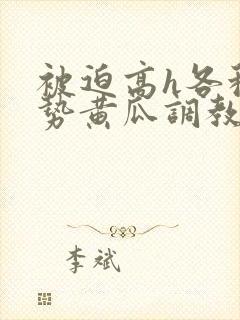 被迫高h各种
势黄瓜調教
李斌